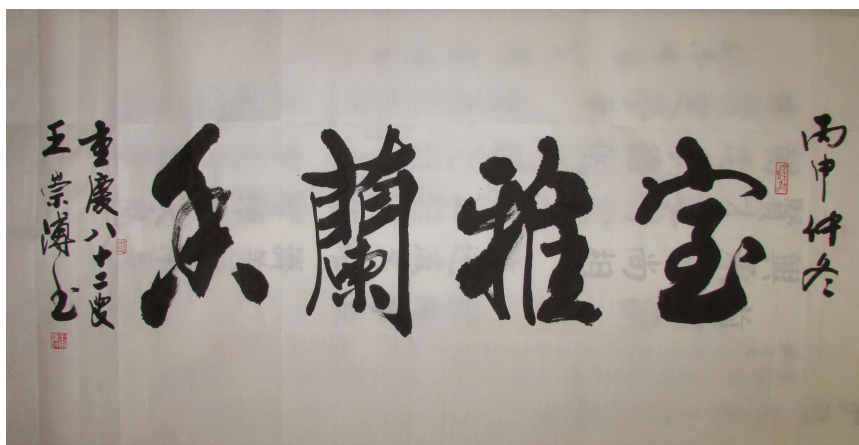 丙申仲冬
室雅蘭香
重慶八十二叟
王崇溥书